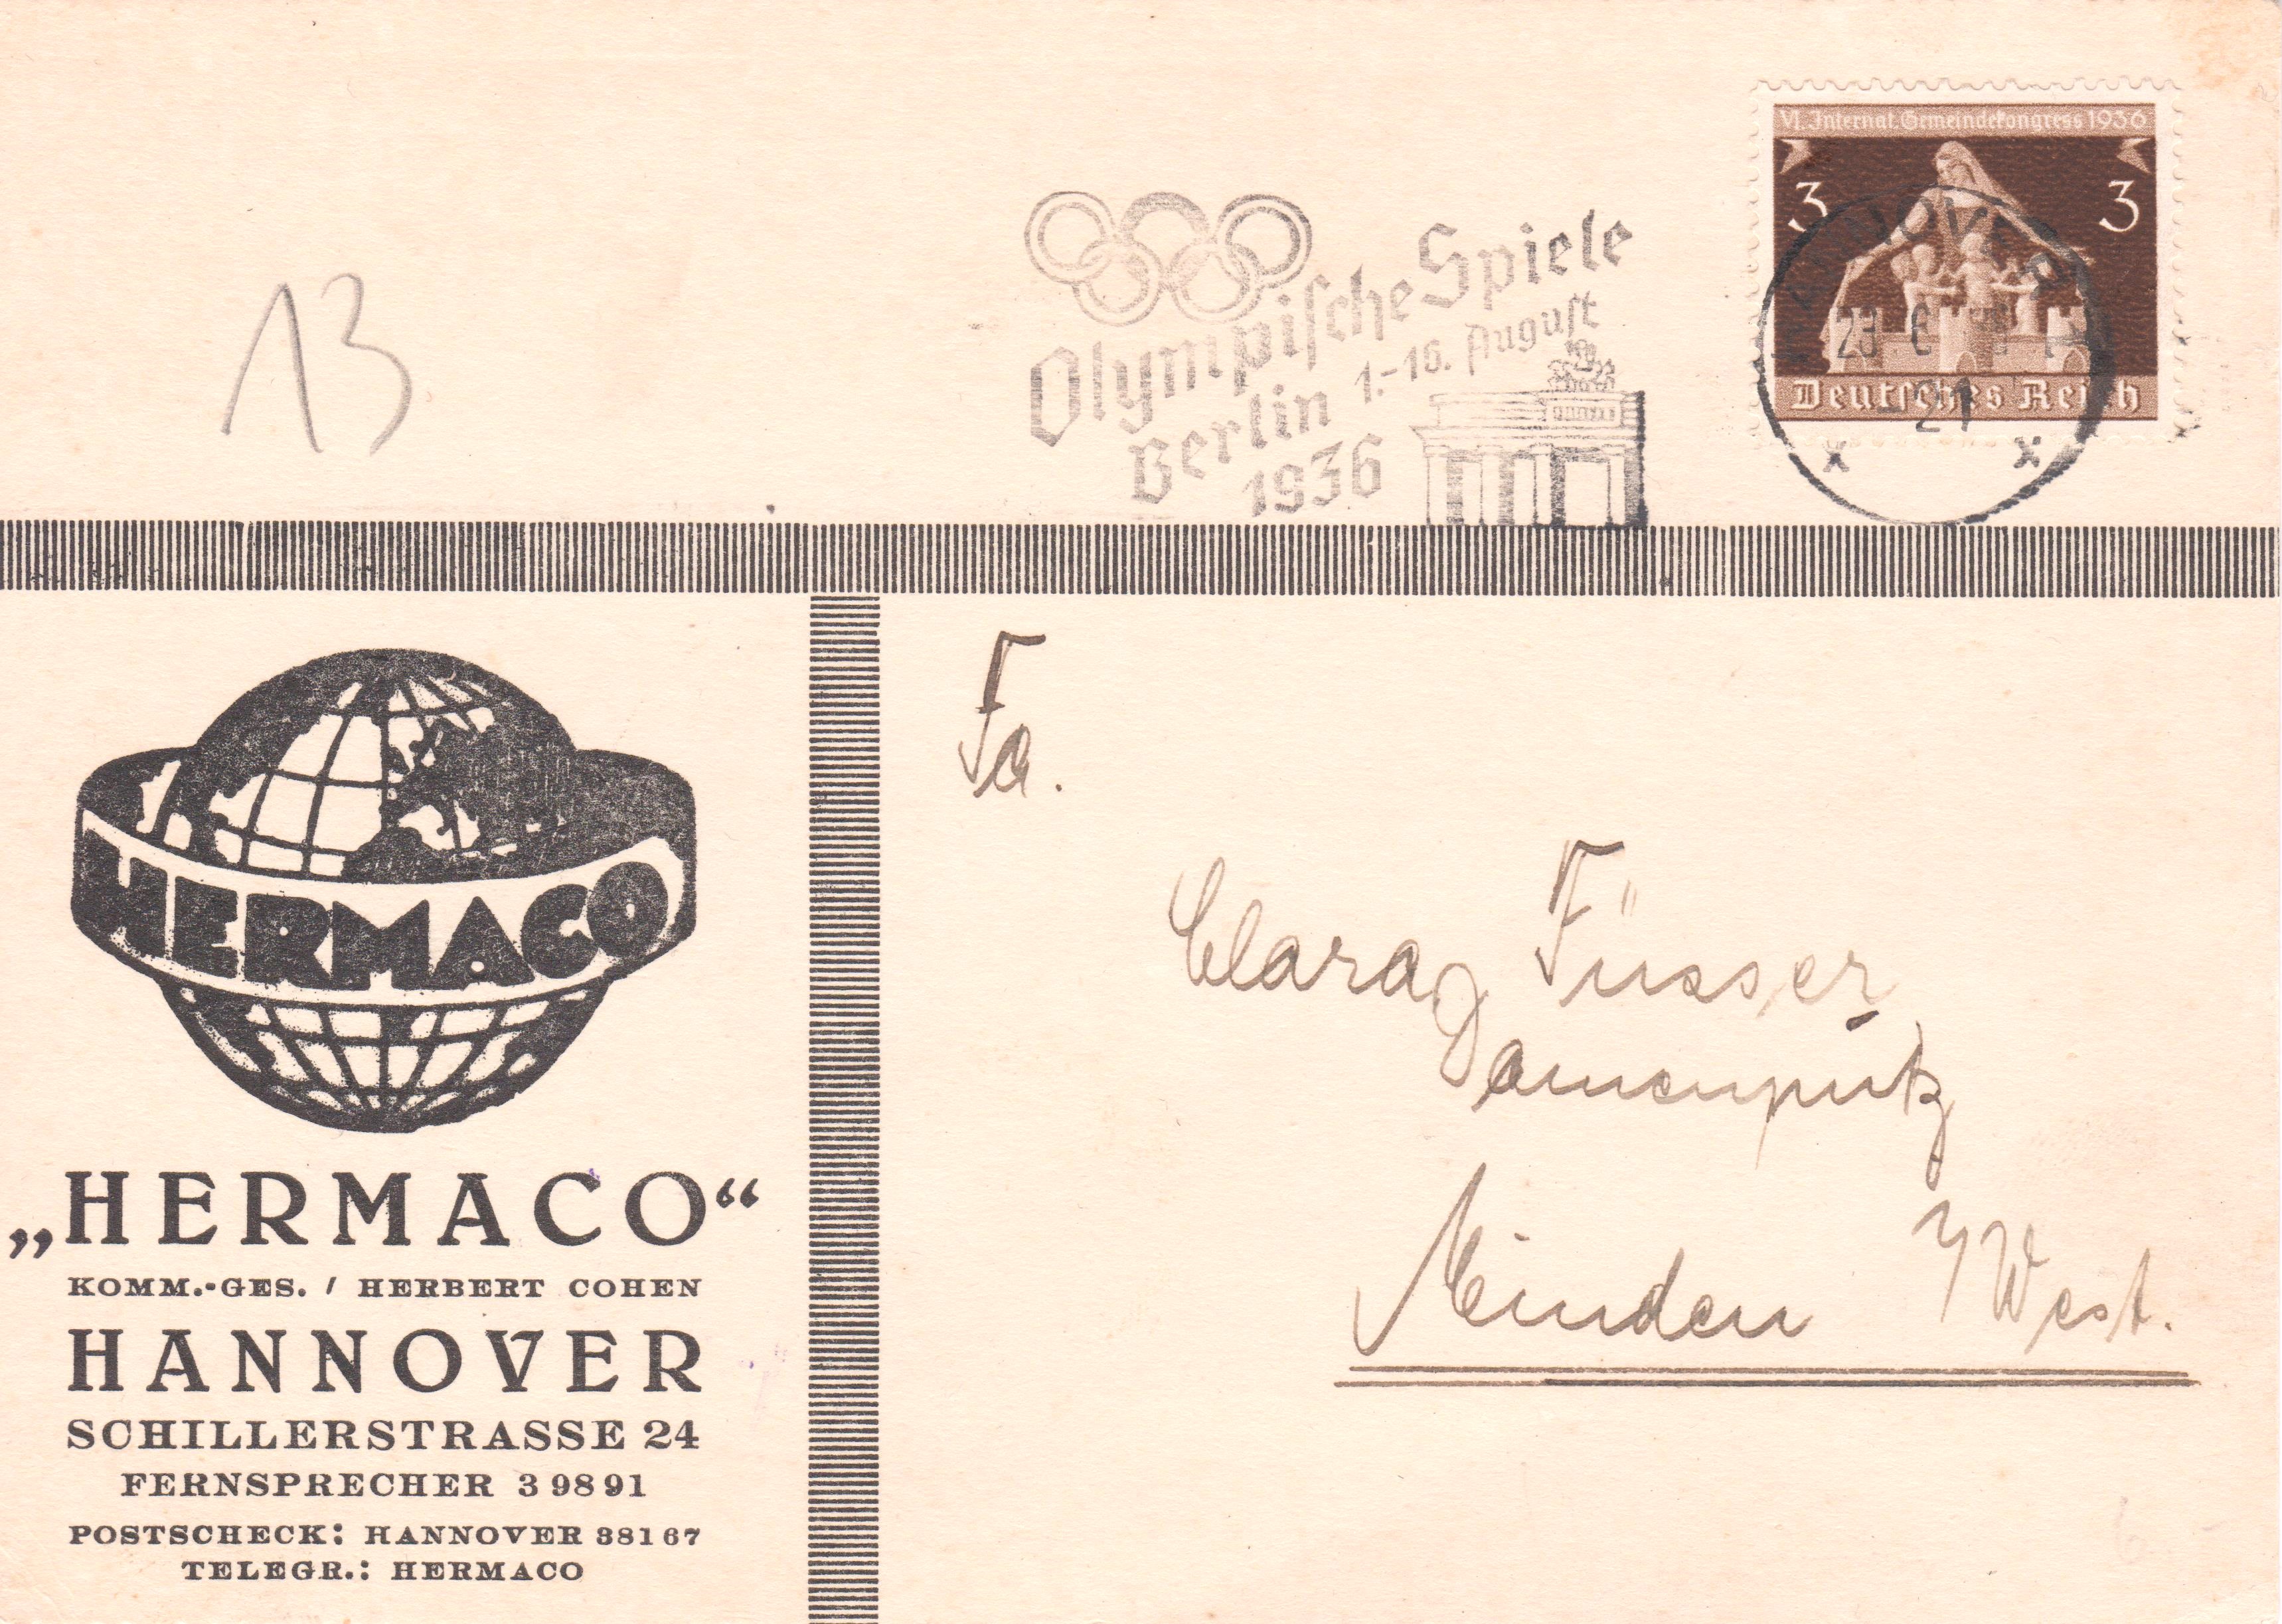 VI. Internat. Gemeindekongress 1936
3 3
Deutsches Reich
HANNOVER
23 6
21
x x
Olympische Spiele
Berlin 1.-16. August
1936
13
HERMACO
„HERMACO“
KOMM.-GES. / HERBERT COHEN
HANNOVER
SCHILLERSTRASSE 24
FERNSPRECHER 3 98 91
POSTSCHECK: HANNOVER 38167
TELEGR.: HERMACO
Fa.
Clara Füsser
Damenputz
Minden i/West.